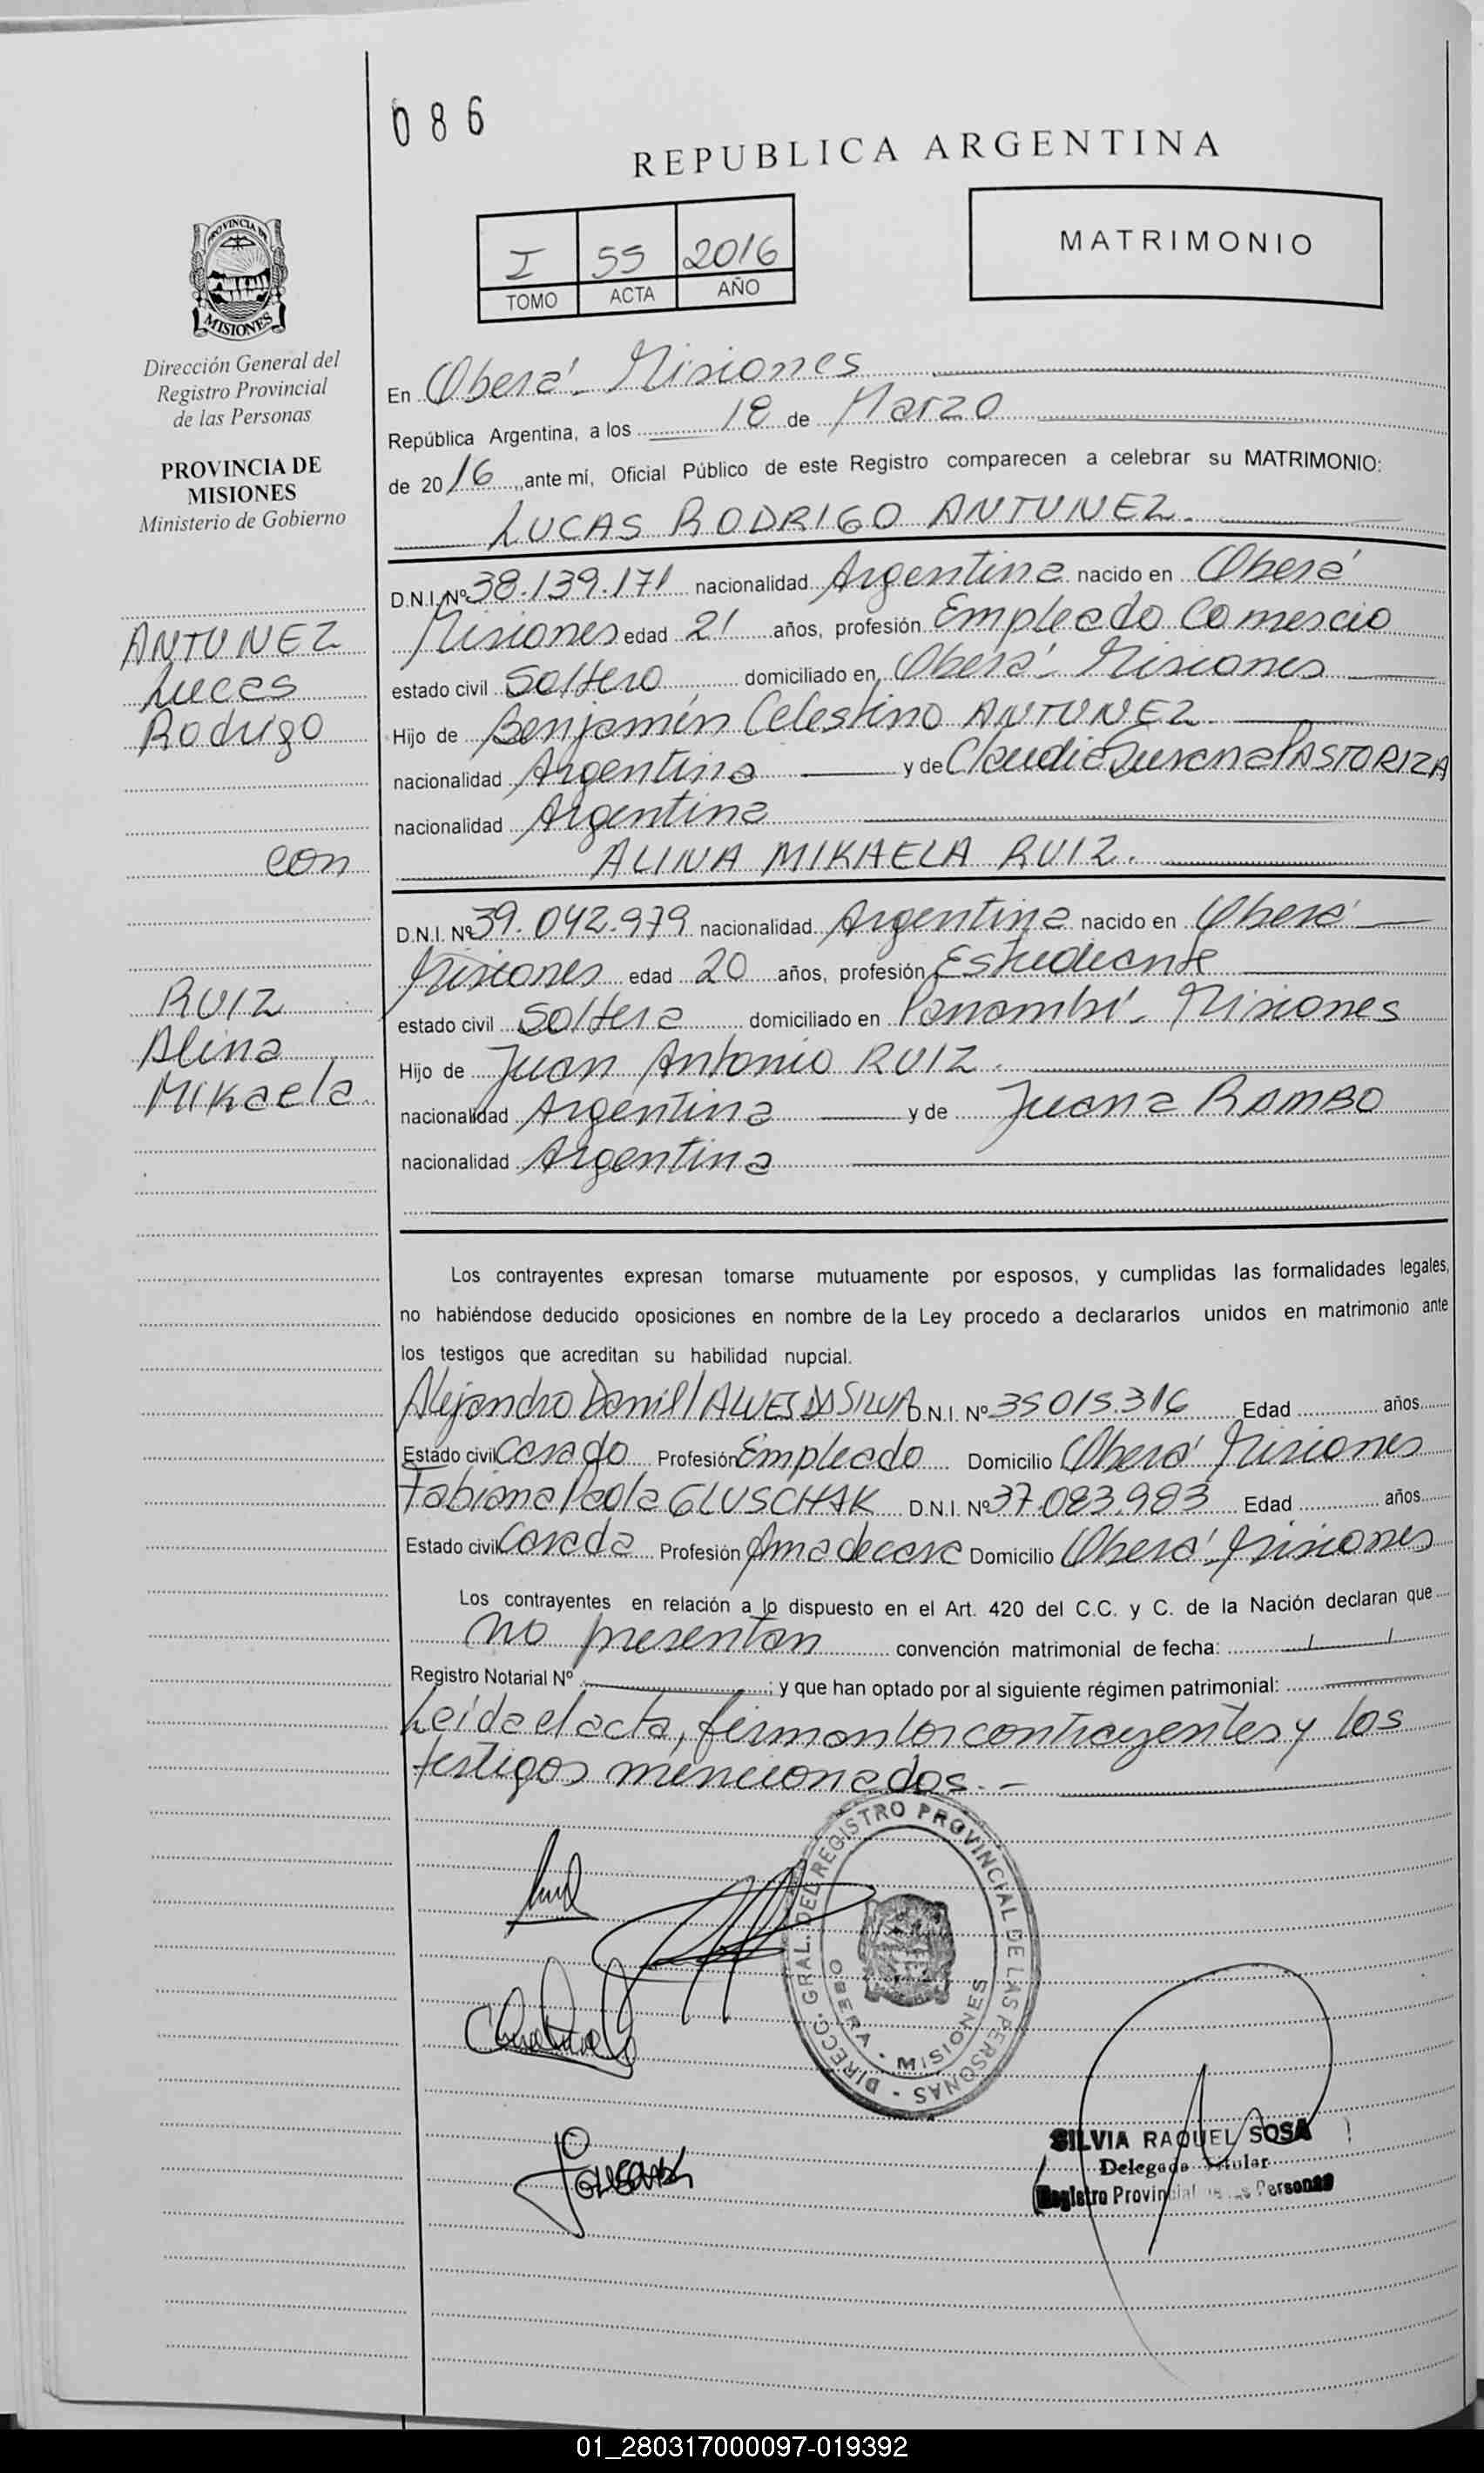 086
REPUBLICA ARGENTINA
I 55 2016
TOMO ACTA AÑO
MATRIMONIO
PROVINCIA DE
MISIONES
Dirección General del
Registro Provincial
de las Personas
PROVINCIA DE
MISIONES
Ministerio de Gobierno
ANTUNEZ
Lucas
Rodrigo
con
RUIZ
Alina
Mikaela
En Oberá - Misiones
República Argentina, a los 18 de Marzo
de 2016, ante mí, Oficial Público de este Registro comparecen a celebrar su MATRIMONIO:
LUCAS RODRIGO ANTUNEZ.
D.N.I. Nº 38.139.171 nacionalidad Argentina nacido en Oberá
Misiones edad 21 años, profesión Empleado Comercio
estado civil Soltero domiciliado en Oberá - Misiones
Hijo de Benjamín Celestino ANTUNEZ
nacionalidad Argentina y de Claudia Susana PASTORIZA
nacionalidad Argentina
ALINA MIKAELA RUIZ.
D.N.I. Nº 39.042.979 nacionalidad Argentina nacido en Oberá
Misiones edad 20 años, profesión Estudiante
estado civil Soltera domiciliado en Panambí - Misiones
Hijo de Juan Antonio RUIZ.
nacionalidad Argentina y de Juana RAMBO
nacionalidad Argentina
Los contrayentes expresan tomarse mutuamente por esposos, y cumplidas las formalidades legales,
no habiéndose deducido oposiciones en nombre de la Ley procedo a declararlos unidos en matrimonio ante
los testigos que acreditan su habilidad nupcial.
Alejandro Daniel ALVES DA SILVA D.N.I. Nº 35.015.316 Edad años
Estado civil Casado Profesión Empleado Domicilio Oberá Misiones
Fabiana Paola GLUSCHAK D.N.I. Nº 37.083.983 Edad años
Estado civil Casada Profesión Ama de casa Domicilio Oberá - Misiones
Los contrayentes en relación a lo dispuesto en el Art. 420 del C.C. y C. de la Nación declaran que
no presentan convención matrimonial de fecha: / /
Registro Notarial Nº ; y que han optado por al siguiente régimen patrimonial:
Leída el acta, firman los contrayentes y los
testigos mencionados. -
DIRECC. GRAL. DEL REGISTRO PROVINCIAL DE LAS PERSONAS -
OBERA - MISIONES
SILVIA RAQUEL SOSA
Delegada Titular
Registro Provincial de las Personas
01_280317000097-019392